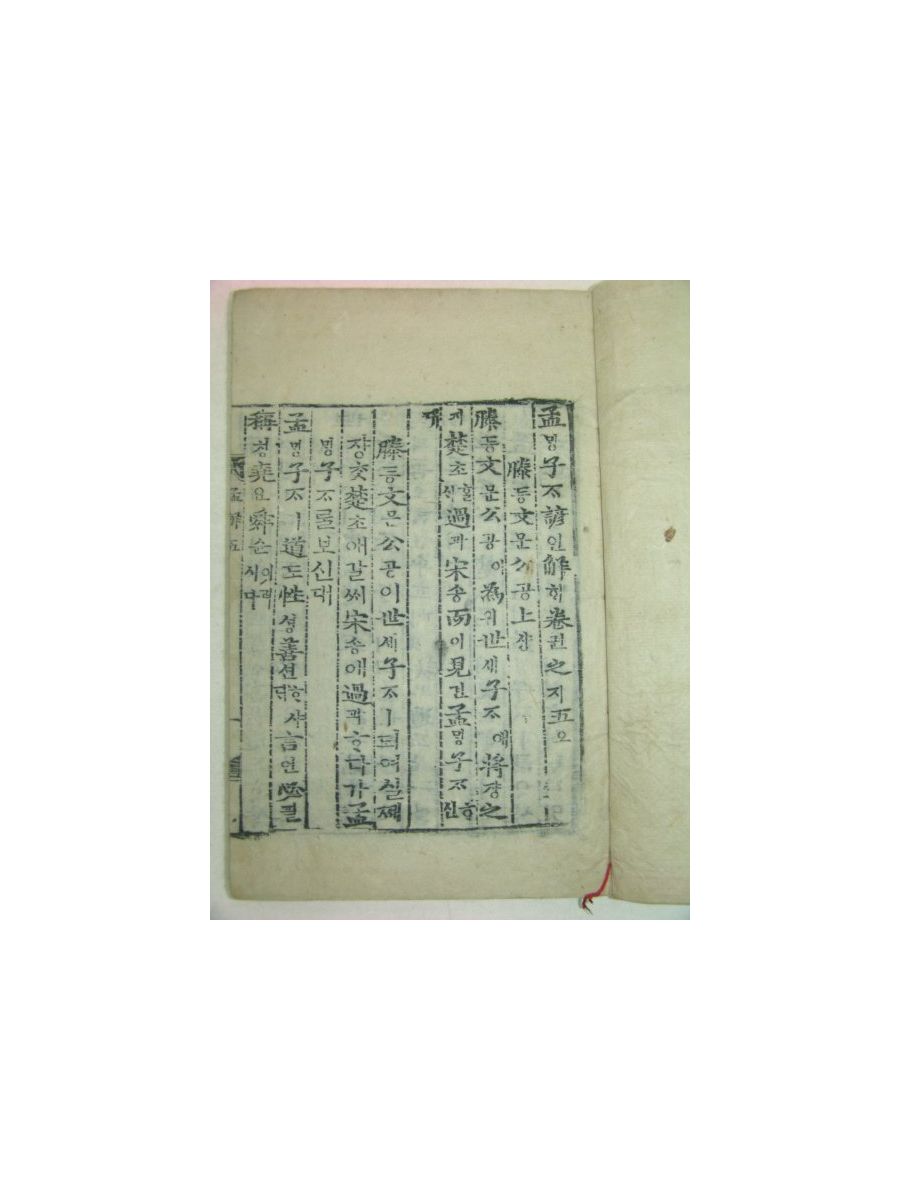 孟ᄆᆡᆼ子ᄌᆞ諺언解ᄒᆡ卷권之지五오
滕등文문公공上샹
滕등文문公공이爲위世셰子ᄌᆞ애將쟝之
지楚초ᄒᆞᆯᄉᆡ過과宋송而이見견孟ᄆᆡᆼ子ᄌᆞᄒᆞ신
대
滕등文문公공이世셰子ᄌᆞㅣ되여실ᄶᅦ
쟝ᄎᆞᆺ楚초애갈ᄊᆡ宋송애過과ᄒᆞ다가孟
ᄆᆡᆼ子ᄌᆞᄅᆞᆯ보신대
孟ᄆᆡᆼ子ᄌᆞㅣ道도性셩善션ᄒᆞ샤ᄃᆡ言언必필
稱칭堯요舜슌이러시다
孟解五